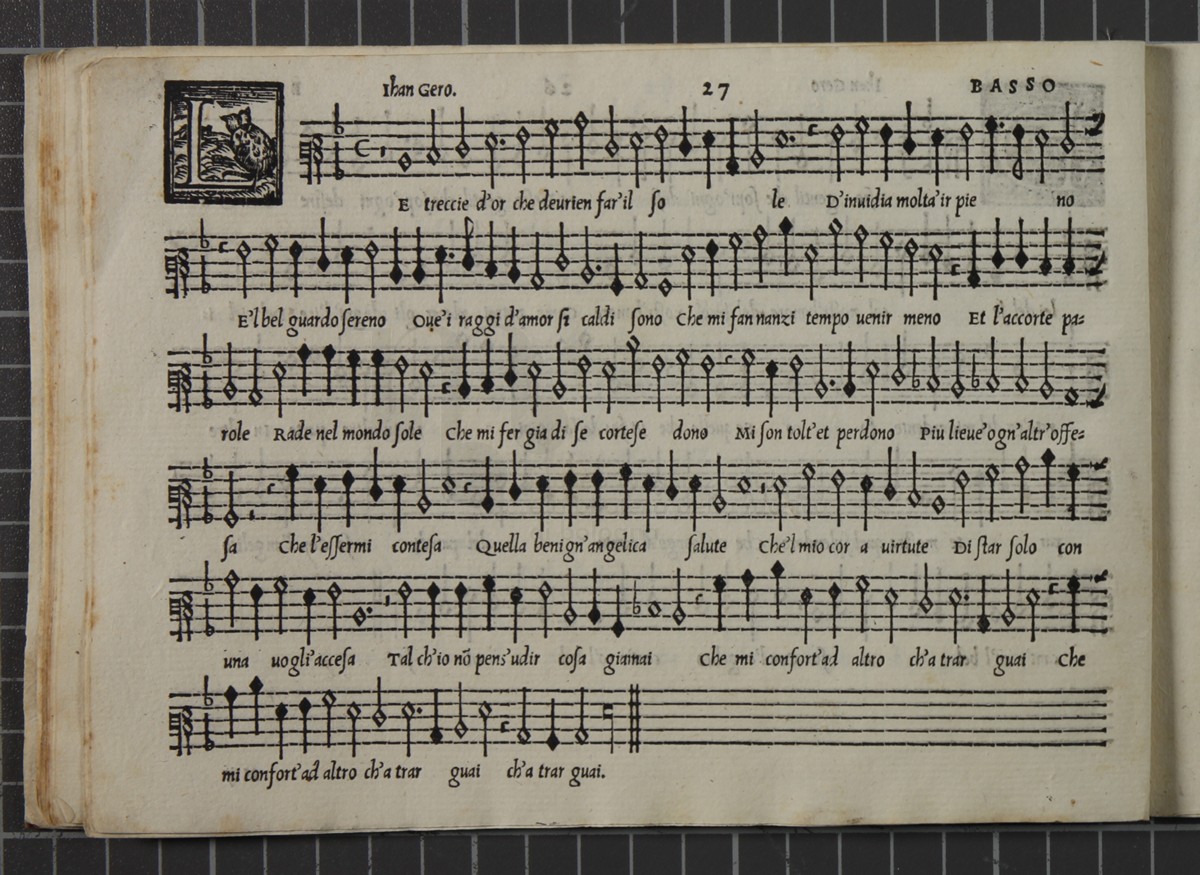 Ihan Gero. 27 BASSO
LE treccie d'or che deurien far'il so le D'inuidia molta'ir pie no
E'l bel guardo sereno Oue'i raggi d'amor si caldi sono Che mi fan nanzi tempo uenir meno Et l'accorte pa=
role Rade nel mondo sole Che mi fer gia di se cortese dono Mi son tolt'et perdono Piu lieue'ogn'altr'offe=
sa Che l'essermi contesa Quella benign'angelica salute Che'l mio cor a uirtute Di star solo con
una uogli'accesa Tal ch'io nō pens'udir cosa giamai Che mi confort'ad altro ch'a trar guai Che
mi confort'ad altro ch'a trar guai ch'a trar guai.